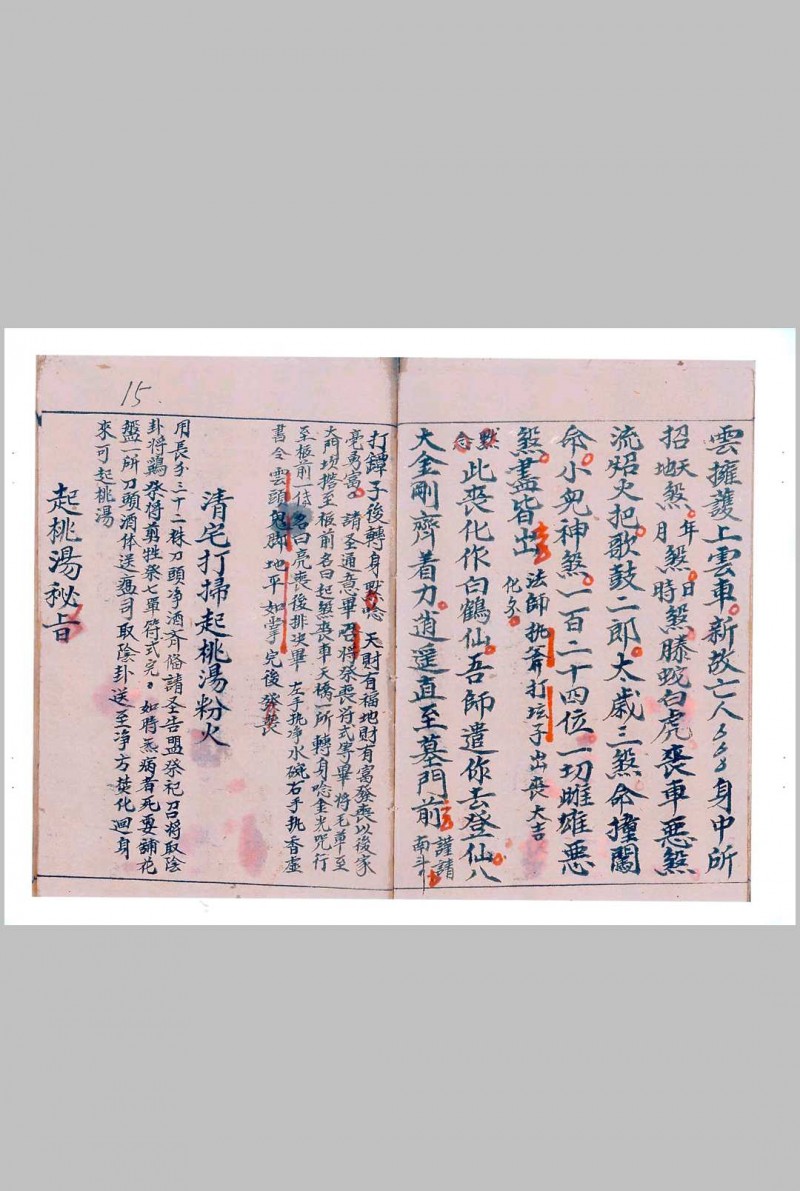 雲擁護上雲車新故亡人身中所
招天煞地煞年煞月煞日煞時煞騰蛇白虎喪車惡煞
流炤火把歌鼓二郎太歲三煞命撞關
命小兒神煞一百二十四位一切雌雄惡
煞盡皆出 法師執斧打坛子出喪大吉
化歹
默念 此喪化作白鶴仙吾師遣你去登仙八
大金剛齊着力逍遥直至墓門前 謹請
南斗
打鐔子後轉身默唸 天財有福地財有富發喪以後家
亮勇富 請圣通意畢召將祭喪符式等畢將毛草至
大門坎撘至柩前名曰起煞喪車天橋一所轉身唸金光咒行
至柩前一低名曰亮喪後排決畢 左手執净水碗右手執香虚
書令雲頭鬼脚地平如掌完後發喪
清宅打掃起桃湯粉火
用長歺三十二株刀頭净酒斉俻請圣告盟祭祀召將取陰
卦將鷄祭将剪牲祭七單符式完。如時炁病者死要舖花
盤一所刀頭酒体送瘟司取陰卦送至净方焚化迴身
來可起桃湯
起桃湯秘旨
15.